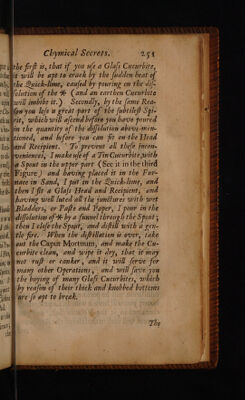 Chymical Secrets. 251
the first is, that if you use a Glass Cucurbite,
it will be apt to crack by the sudden heat of
the Quick-lime, caused by pouring on the dis-
solution of the * (and an earthen Cucurbite
will imbibe it.) Secondly, by the same Rea-
son you lose a great part of the subtilest Spi-
rit, which will ascend before you have poured
in the quantity of the dissolution above-men-
tioned, and before you can fit on the Head
and Recipient. To prevent all these incon-
veniences, I make use of a Tin Cucurbite, with
a Spout in the upper part (See it in the third
Figure) and having placed it in the Fur-
nace in Sand, I put in the Quick-lime, and
then I fit a Glass Head and Recipient, and
having well luted all the junctures with wet
Bladders, or Paste and Paper, I pour in the
dissolution of * by a funnel through the Spout;
then I close the Spout, and distill with a gen-
tle fire. When the distillation is over, take
out the Caput Mortuum, and make the Cu-
curbite clean, and wipe it dry, that it may
not rust or canker, and it will serve for
many other Operations, and will save you
the buying of many Glass Cucurbites, which
by reason of their thick and knobbed bottoms
are so apt to break.
The